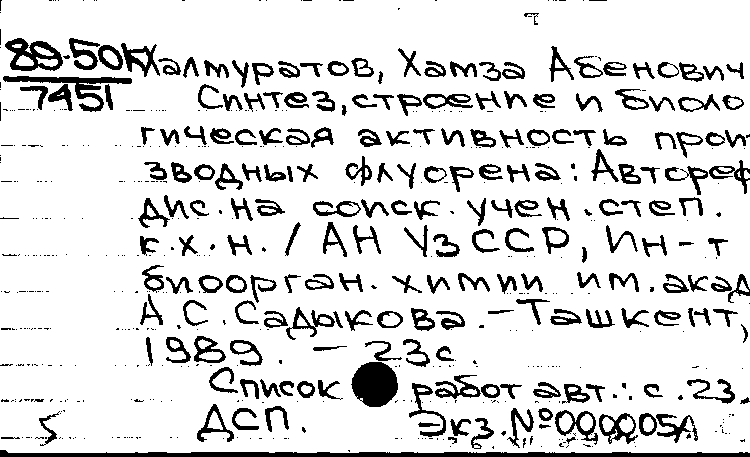 89-50К Халмуратов, Хамза Абенович
7451 Синтез, строение и биоло
гическая активность прои
зводных флуорена: Автореф
дис. на соиск. учен. степ.
к.х.н. / АН УзССР, Ин-т
биоорган. химии им. акад
А.С. Садыкова. - Ташкент,
1989. - 23с.
Список работ авт.: с. 23.
ДСП. Экз. №000005А